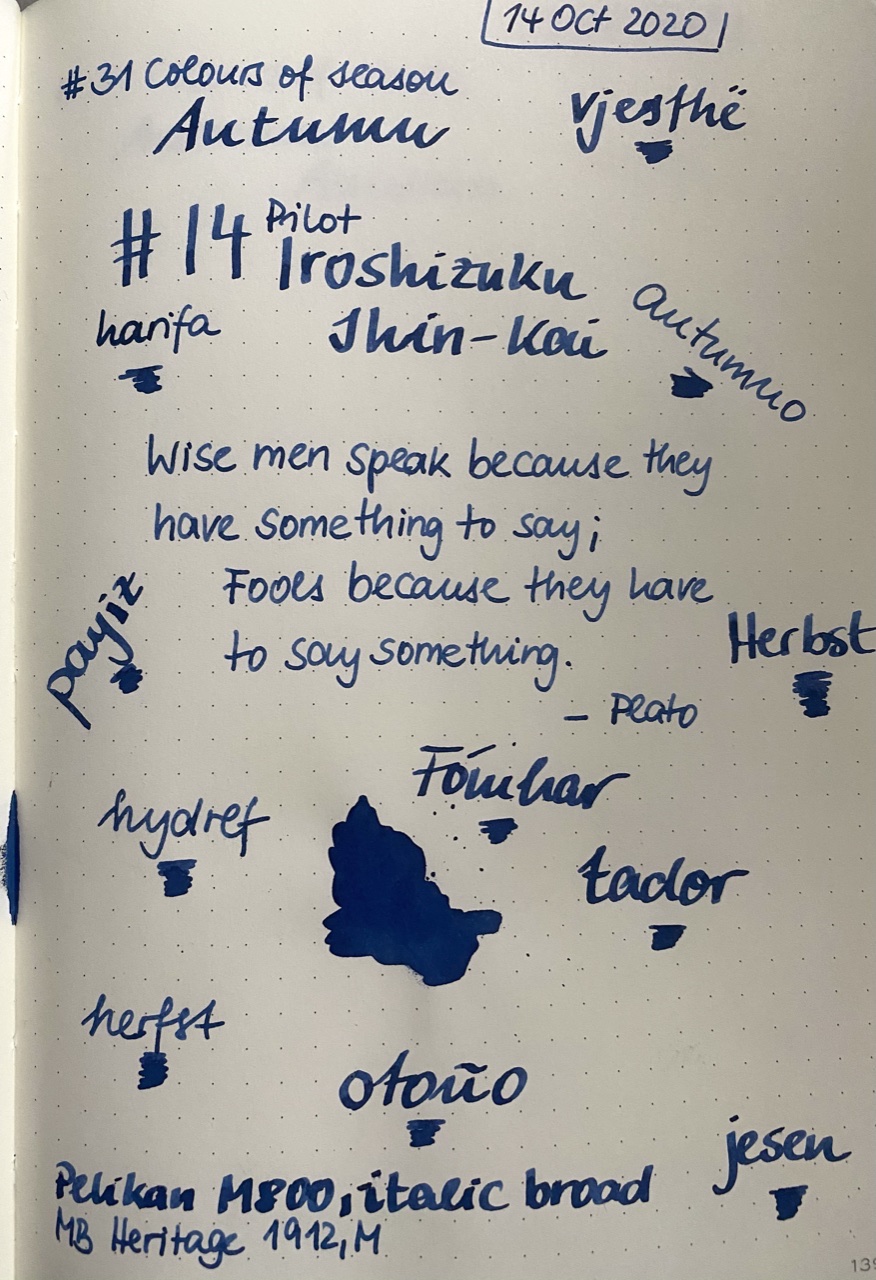 14 Oct 2020
#31 Colours of season
Autumn
vjeshtë
#14 Pilot
Iroshizuku
Shin-Kai
harifa
autunno
Wise men speak because they
have something to say;
Fools because they have
to say something.
- Plato
payiz
Herbst
Fómhar
hydref
tador
herfst
otoño
jesen
Pelikan M800, italic broad
MB Heritage 1912, M
139